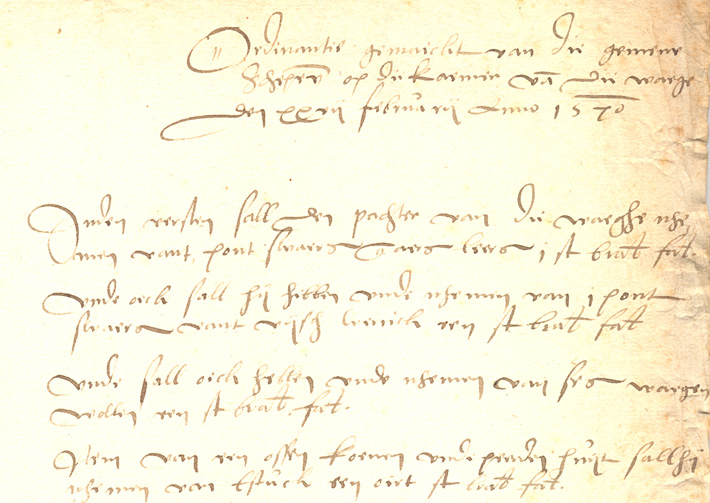 Ordinantie gemaicht van die gemene
Schepen op die Kaemer vā die waege
den xxvij februarij Anno 1570
Inden eersten sall den pachter van die waeghe nhe,
men vant pont swaers leers j st brab fat.
Unde oick sall hij hebben unde nhemen van j pont
swaers vant een st brab fat
Unde sall oick hebben unde nhemen van ses waegen
wollen een st brab fat.
Item van een ossen koenen unde peerden huyt sall hij
nhemen van tstuck een oirt st brab fat.